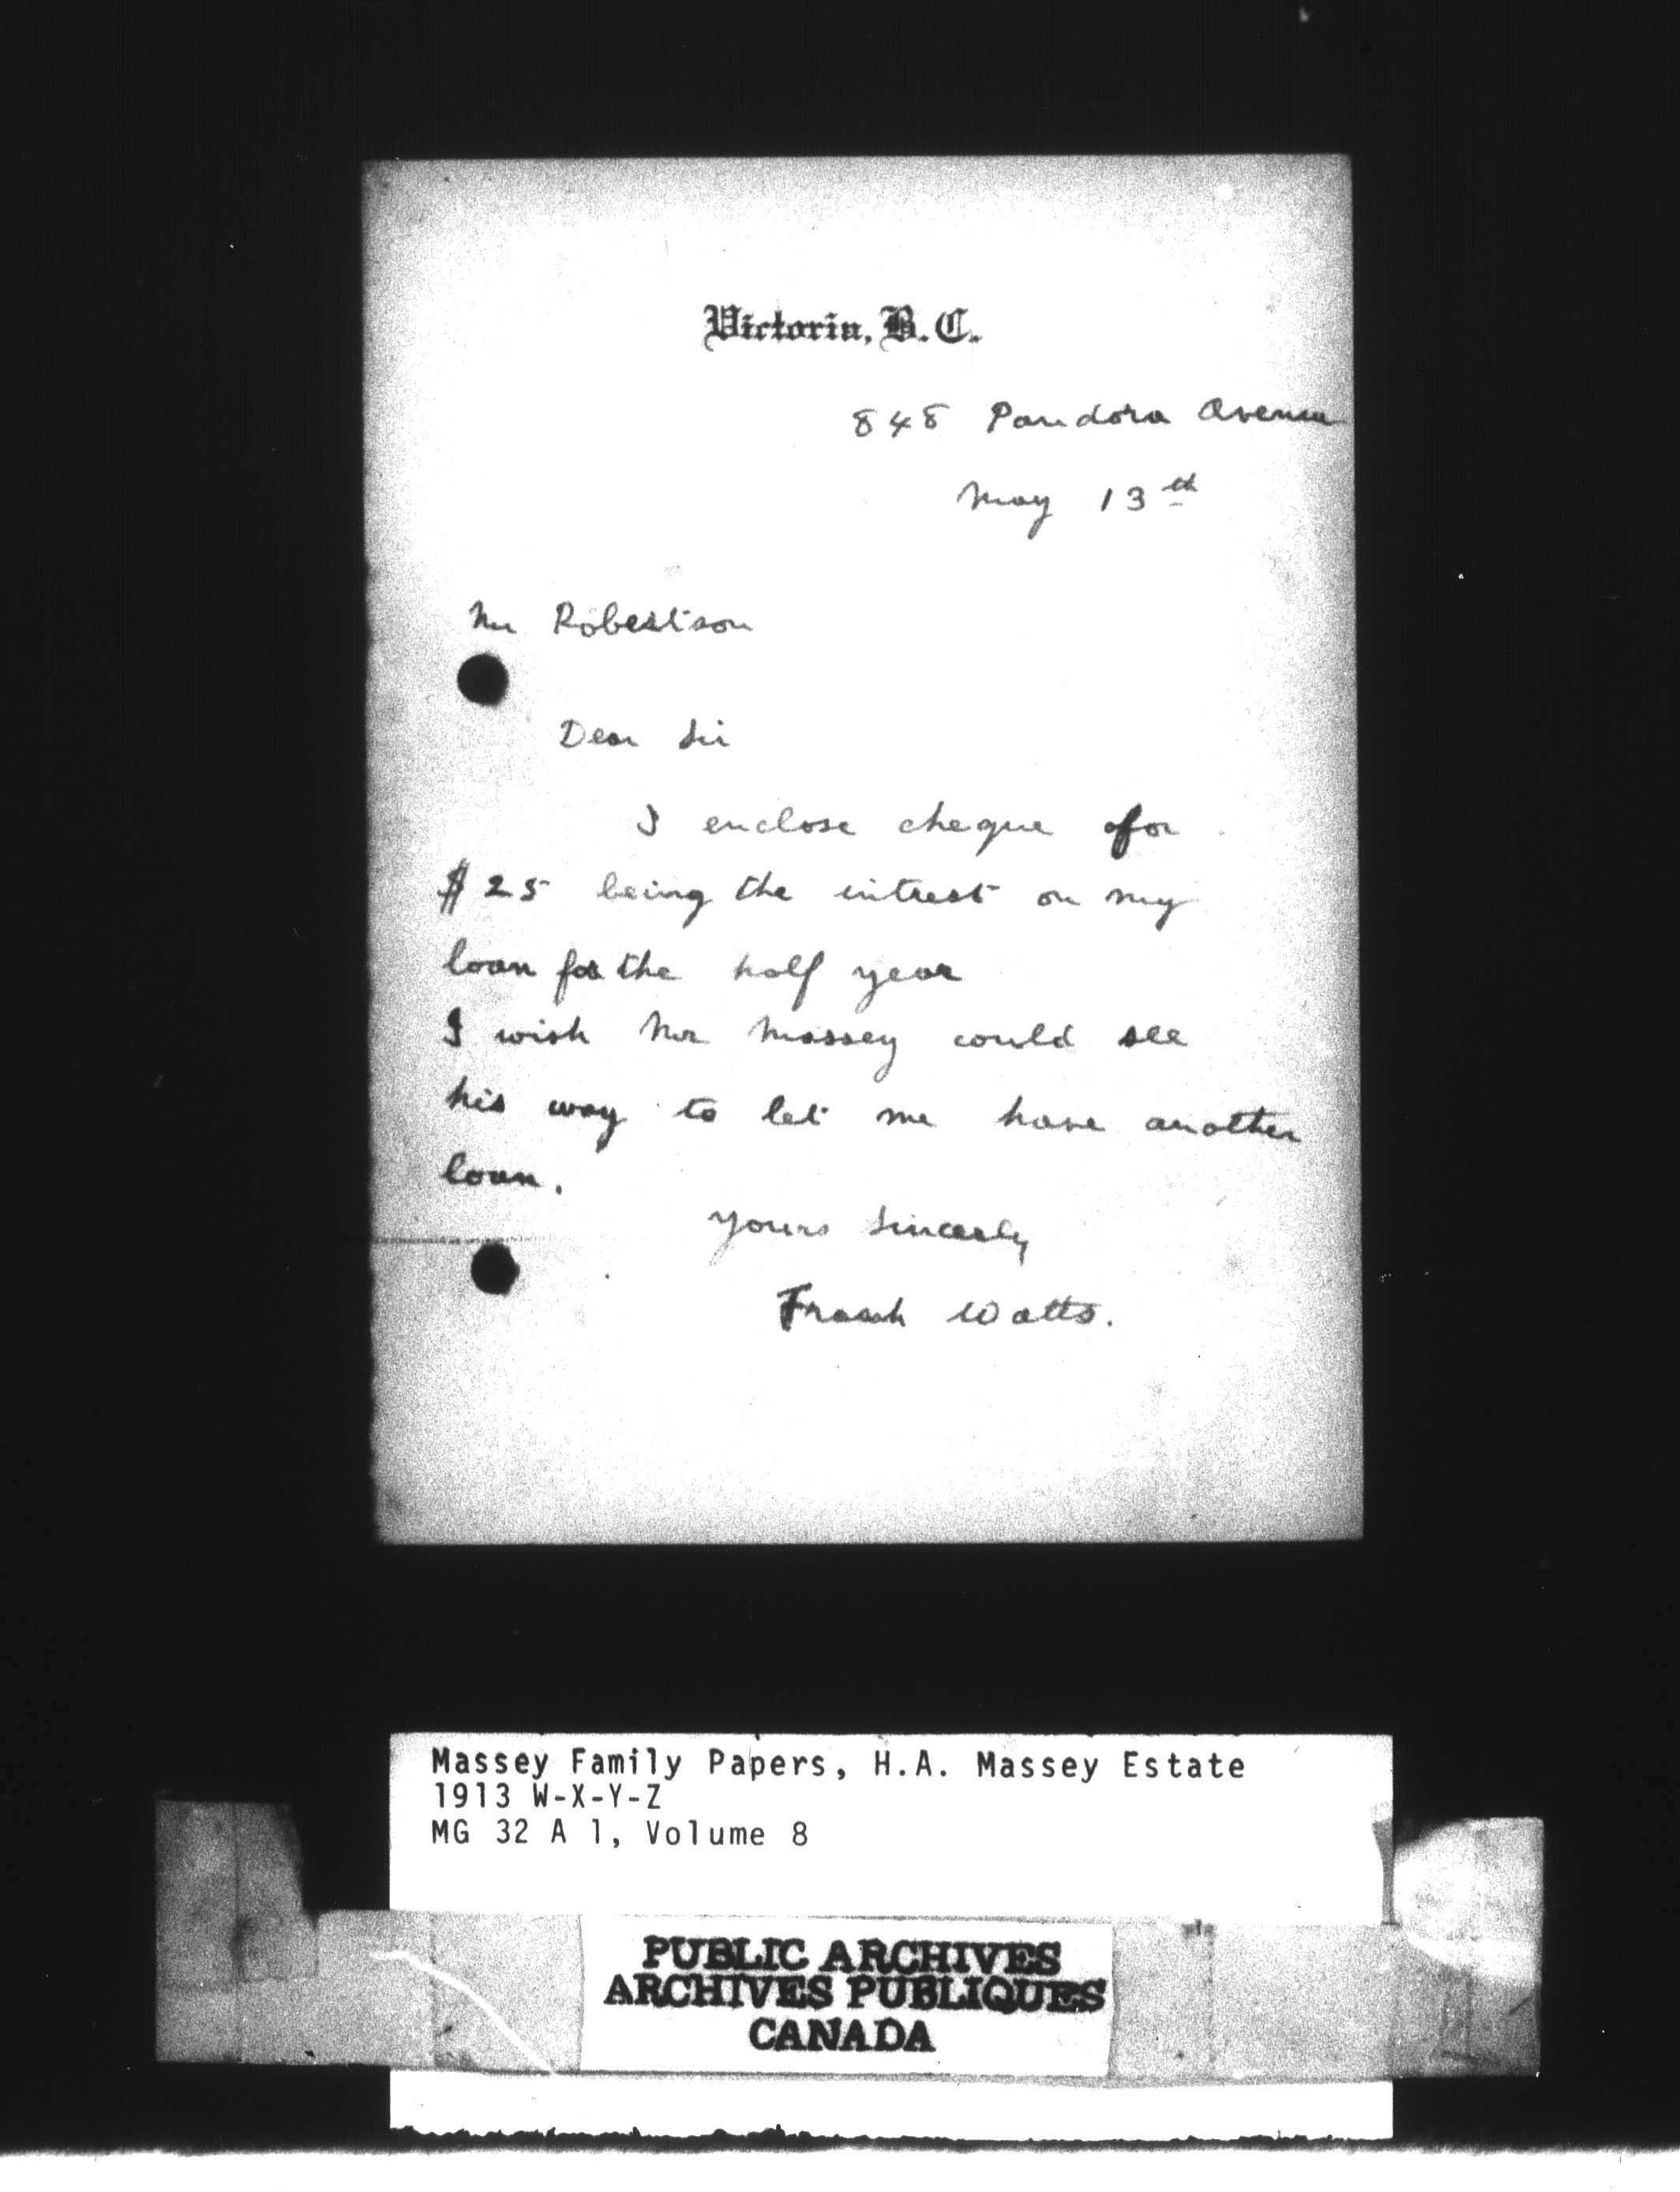 Victoria, B.C.
848 Pandora Avenue
May 13th
Mr Robertson
Dear Sir
I enclose cheque for
$25 being the intrest on my
loan for the half year
I wish Mr Massey could see
his way to let me have another
loan.
Yours Sincerly
Frank Watts.
Massey Family Papers, H.A. Massey Estate
1913 W-X-Y-Z
MG 32 A 1, Volume 8
PUBLIC ARCHIVES
ARCHIVES PUBLIQUES
CANADA